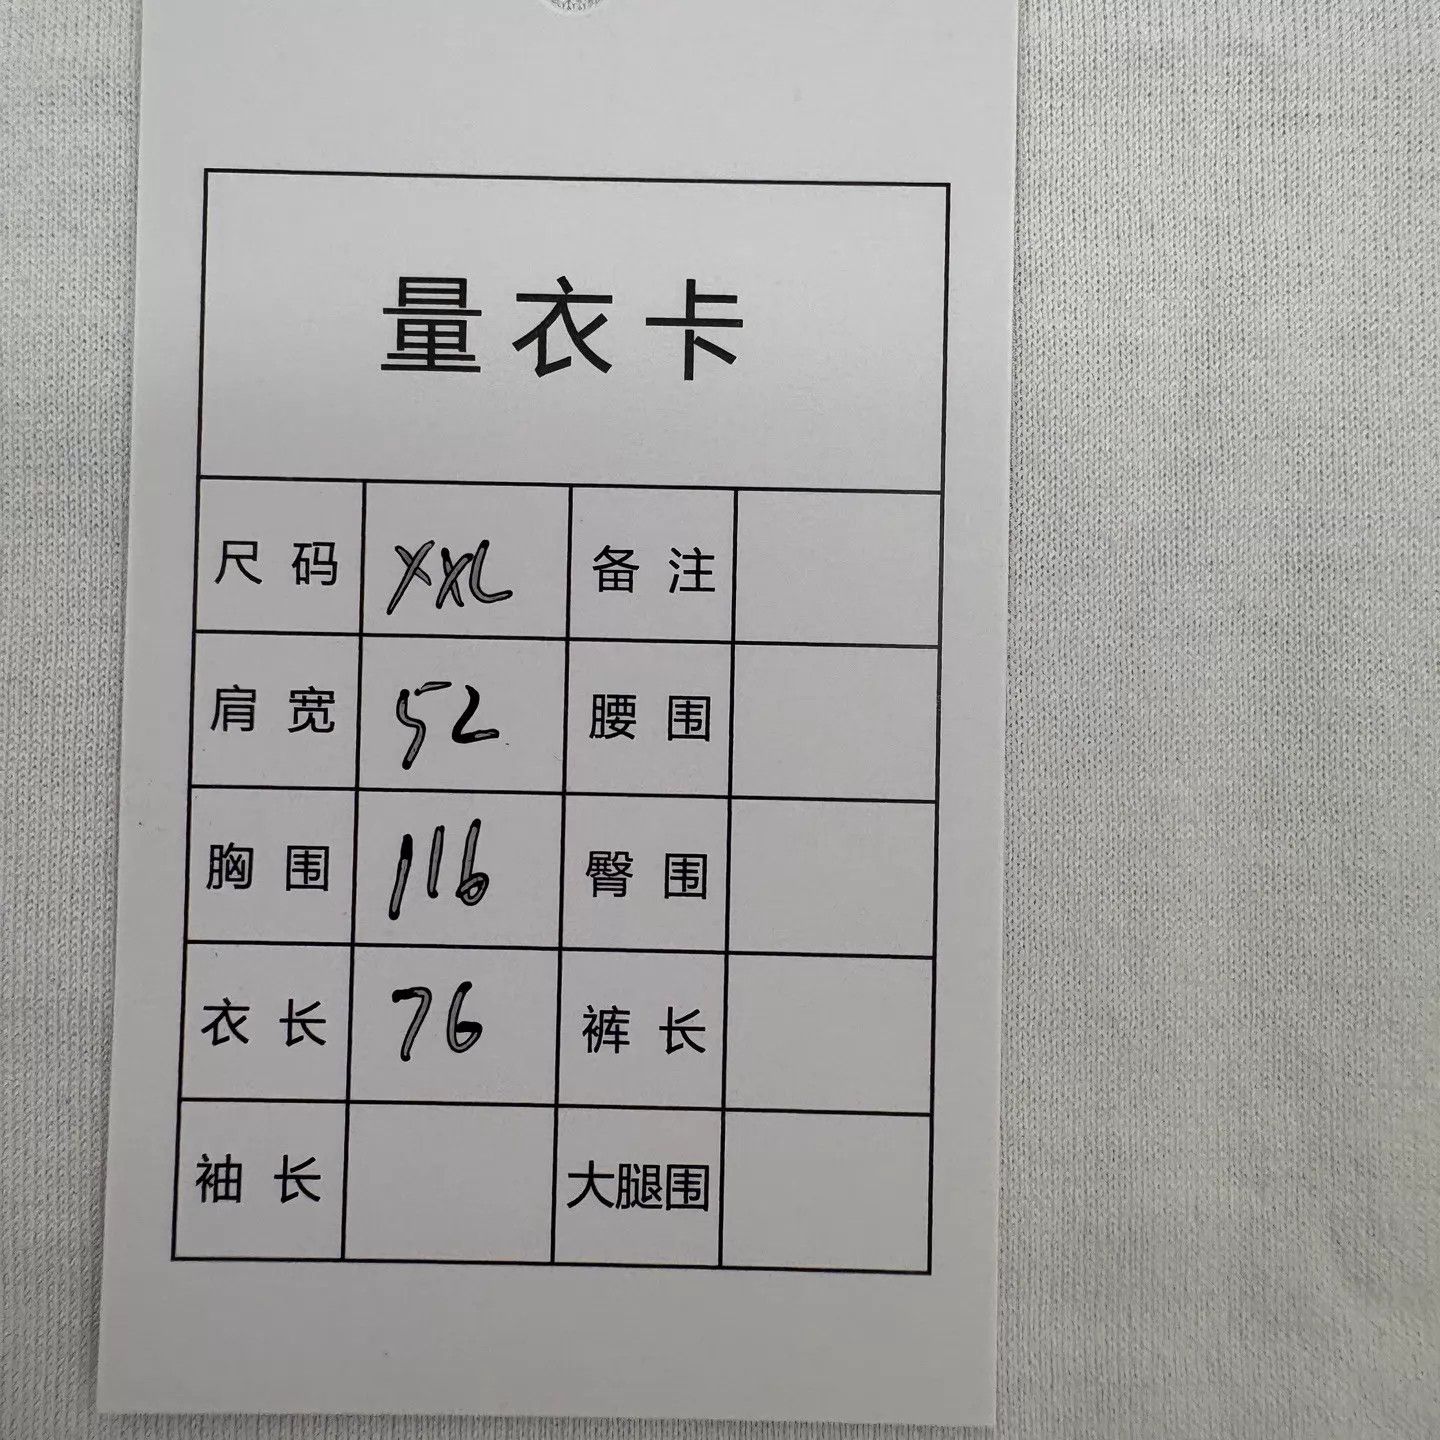 量衣卡
尺码 XXL 备注
肩宽 52 腰围
胸围 116 臀围
衣长 76 裤长
袖长 大腿围